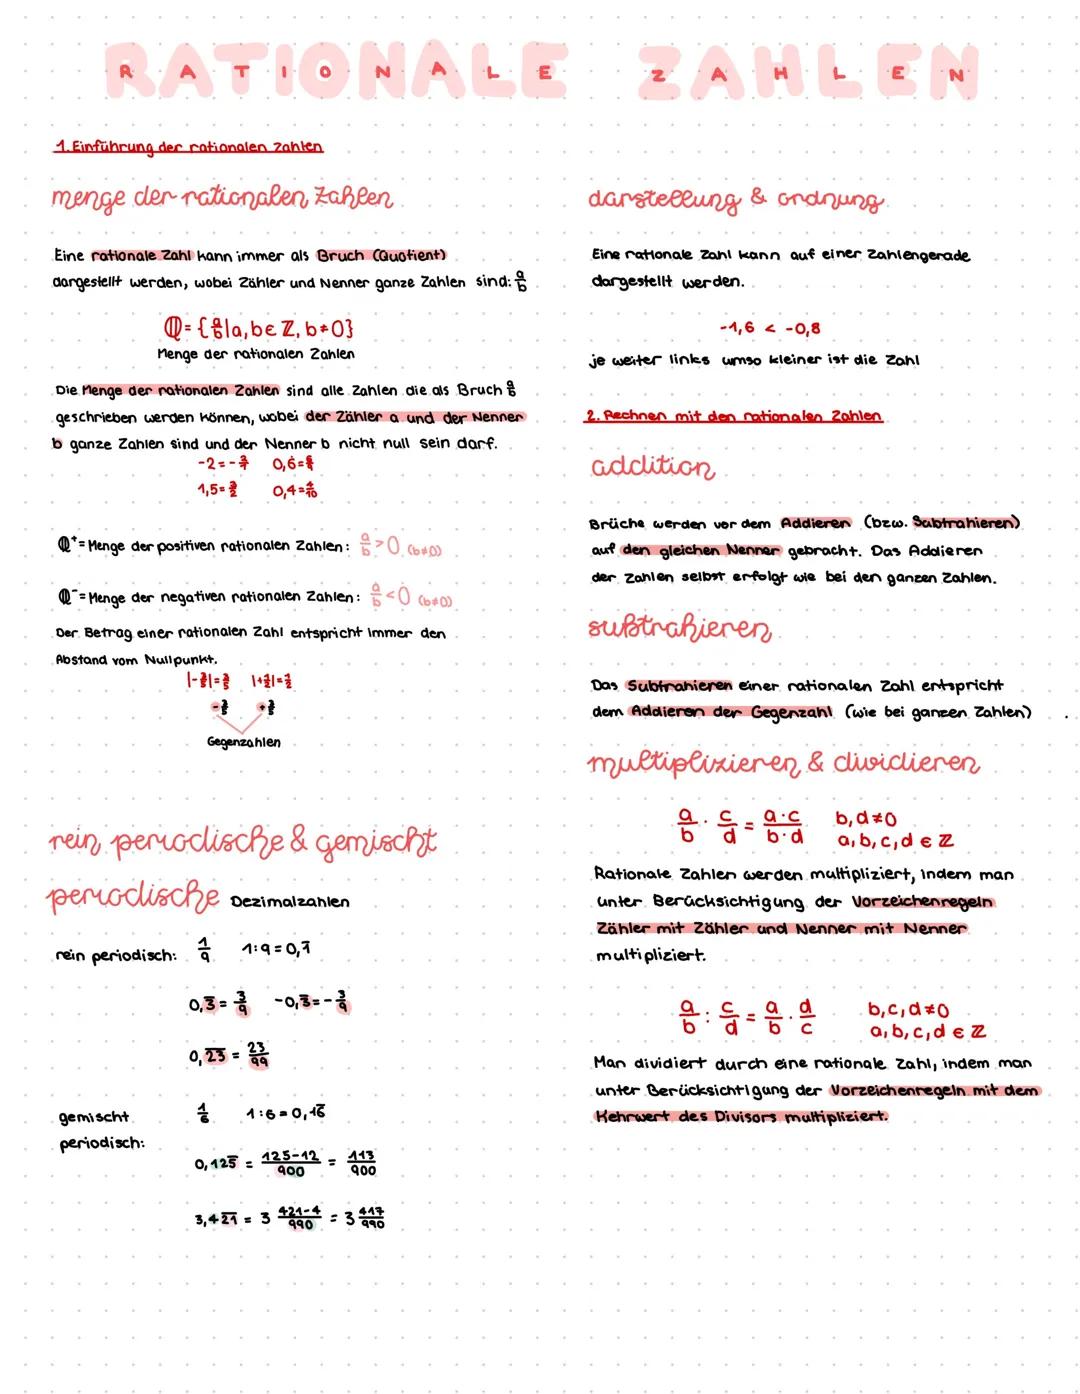 RATIONALE ZAHLEN
1. Einführung der rationalen Zahlen
menge der rationalen Zahlen
Eine rationale Zahl kann immer als Bruch (Quotient)
dargestellt werden, wobei Zähler und Nenner ganze Zahlen sind: a/b
ℚ = {a/b | a, b ∈ ℤ, b ≠ 0}
Menge der rationalen Zahlen
Die Menge der rationalen Zahlen sind alle Zahlen die als Bruch a/b
geschrieben werden können, wobei der Zähler a und der Nenner
b ganze Zahlen sind und der Nenner b nicht null sein darf.
0,4 = 4/10
ℚ⁺ = Menge der positiven rationalen Zahlen: a/b > 0 (b≠0)
ℚ⁻ = Menge der negativen rationalen Zahlen: a/b < 0 (b≠0)
Der Betrag einer rationalen Zahl entspricht immer den
Abstand vom Nullpunkt.
|-3/5| = 3/5 |+1/2| = 1/2
-3/5 +3/5
Gegenzahlen
rein periodische & gemischt
periodische Dezimalzahlen
rein periodisch: 1/9 1:9 = 0,1̅
0,3̅ = 3/9 -0,3̅ = -3/9
0,2̅3̅ = 23/99
gemischt 1/6 1:6 = 0,16̅
periodisch:
0,125̅ = 125-12/900 = 113/900
3,42̅1̅ = 3 421-4/990 = 3 417/990
darstellung & ordnung
Eine rationale Zahl kann auf einer Zahlengerade
dargestellt werden.
-1,6 < -0,8
je weiter links umso kleiner ist die Zahl
2. Rechnen mit den rationalen Zahlen
addition
Brüche werden vor dem Addieren (bzw. Subtrahieren)
auf den gleichen Nenner gebracht. Das Addieren
der Zahlen selbst erfolgt wie bei den ganzen Zahlen.
subtrahieren
Das Subtrahieren einer rationalen Zahl entspricht
dem Addieren der Gegenzahl (wie bei ganzen Zahlen)
multiplizieren & dividieren
a/b · c/d = a·c/b·d b, d ≠ 0
a, b, c, d ∈ ℤ
Rationale Zahlen werden multipliziert, indem man
unter Berücksichtigung der Vorzeichenregeln
Zähler mit Zähler und Nenner mit Nenner
multipliziert.
a/b : c/d = a/b · d/c b, c, d ≠ 0
a, b, c, d ∈ ℤ
Man dividiert durch eine rationale Zahl, indem man
unter Berücksichtigung der Vorzeichenregeln mit dem
Kehrwert des Divisors multipliziert.